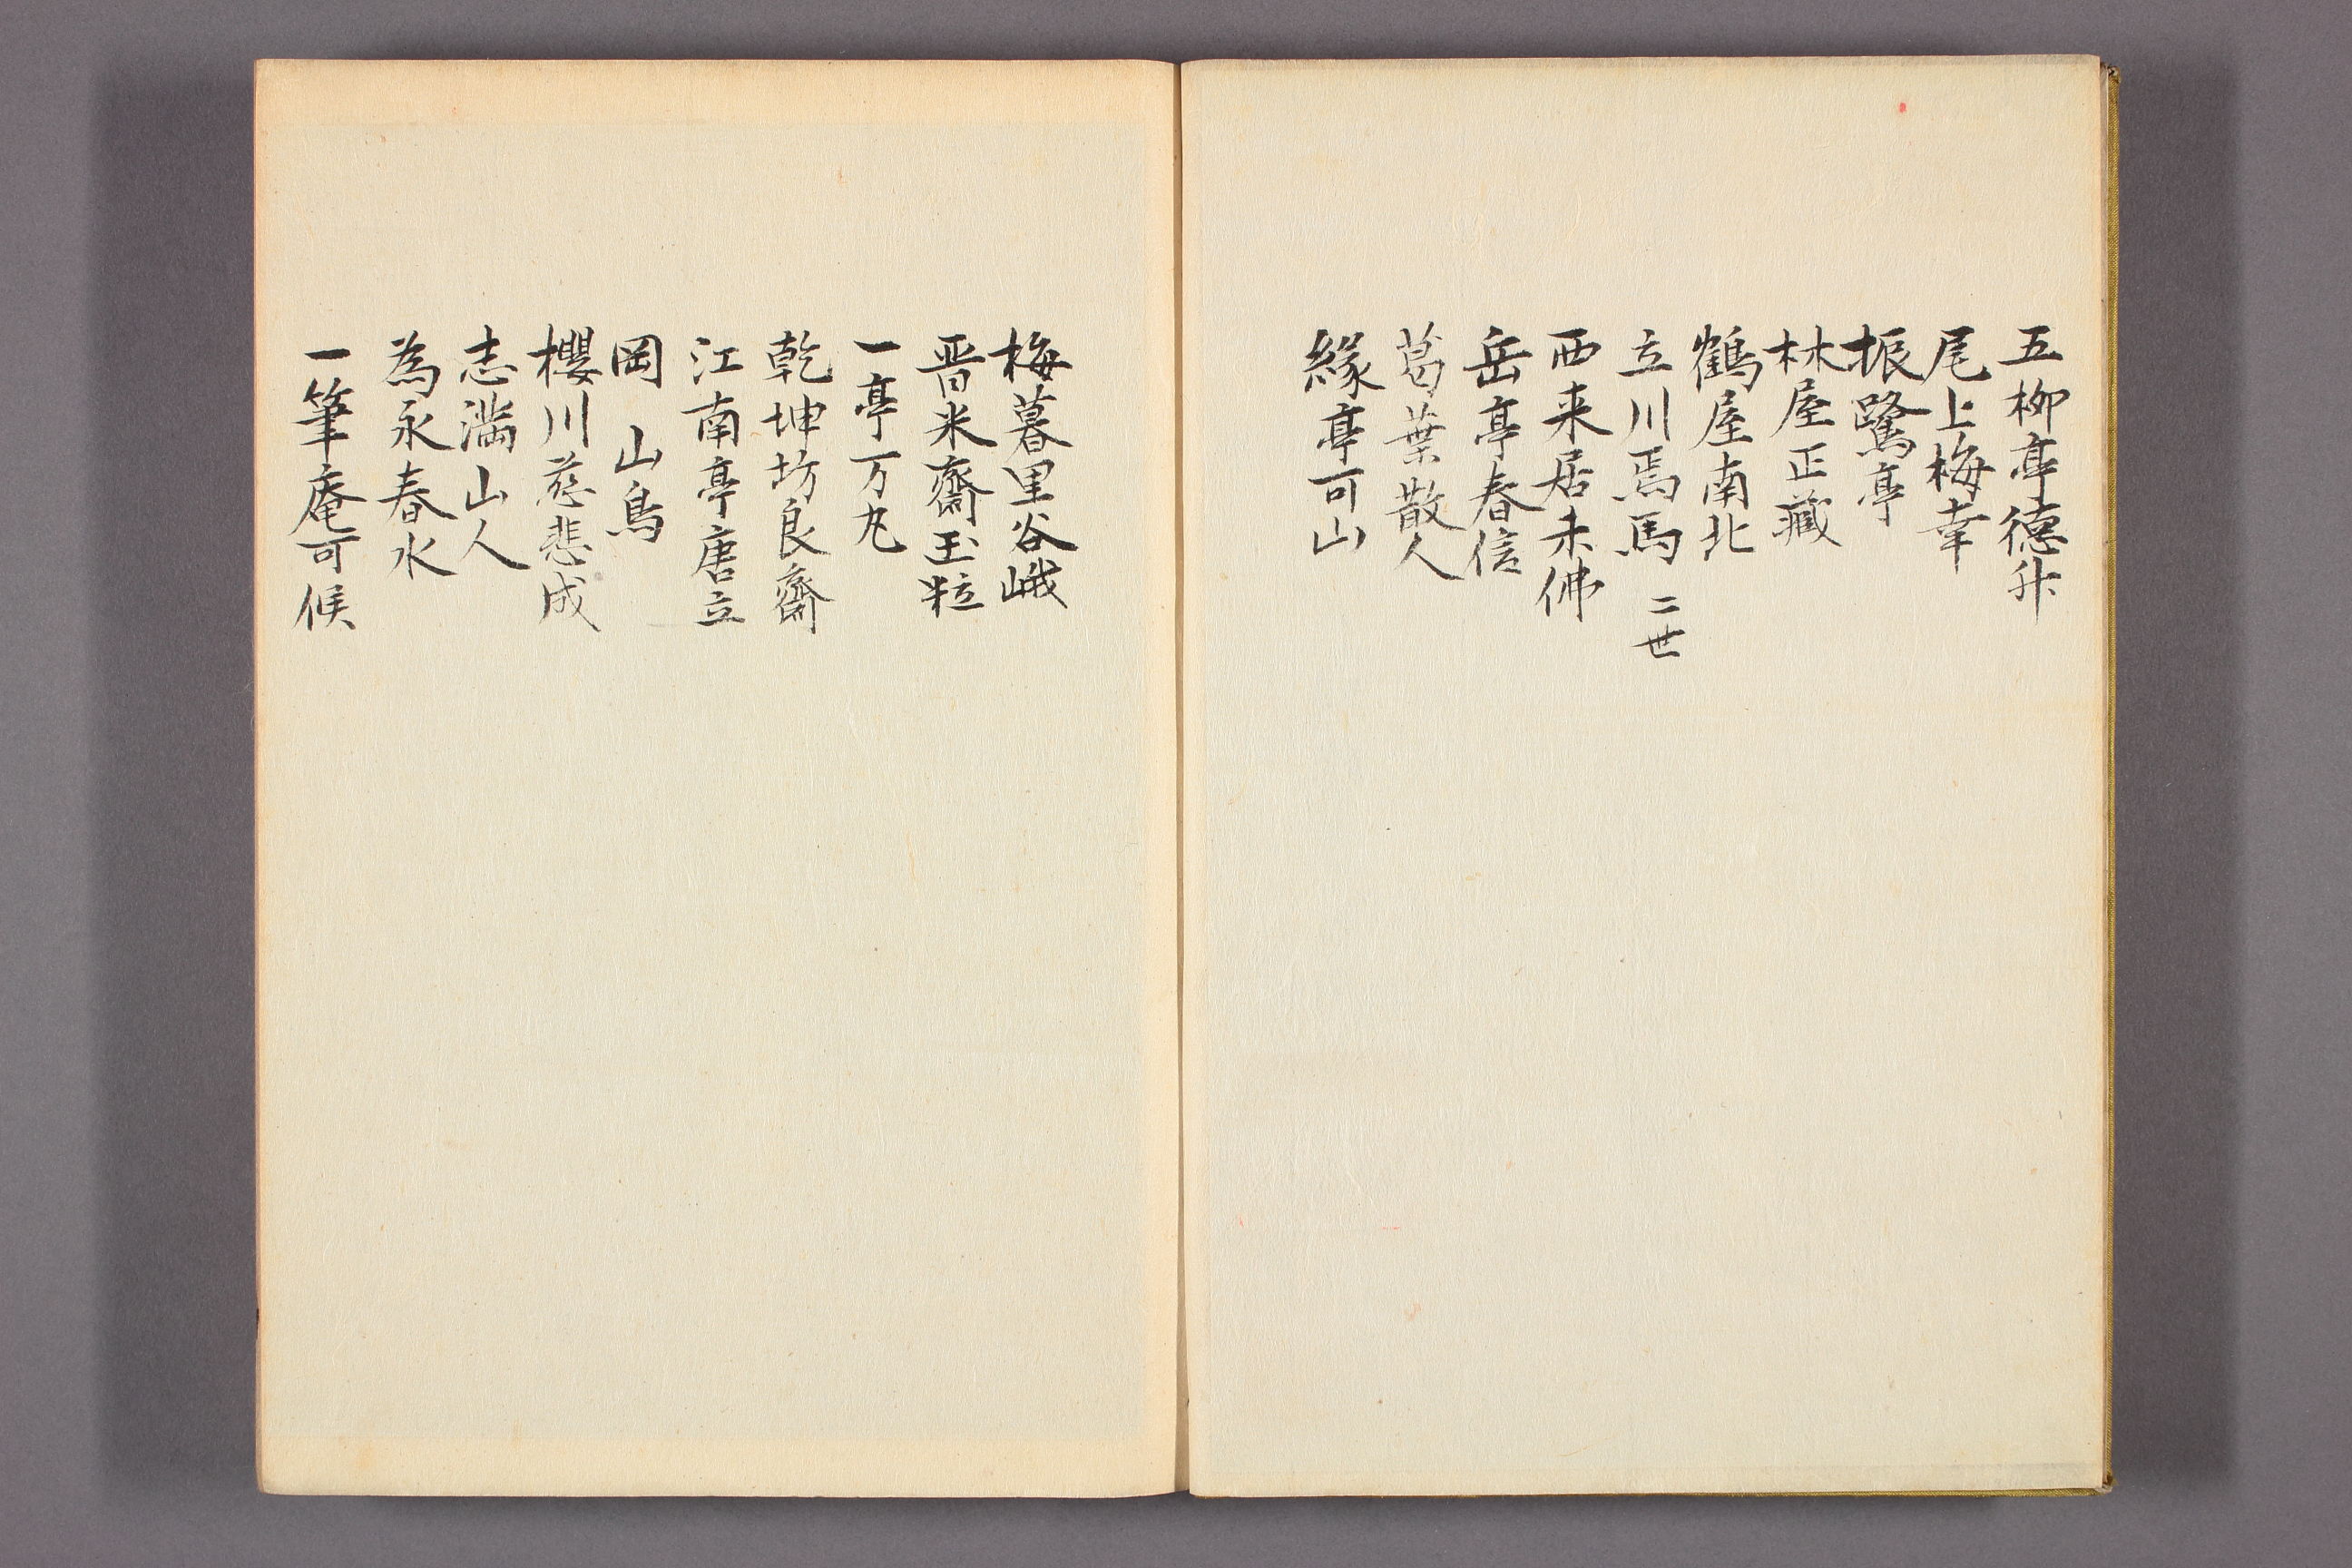 五柳亭徳升
尾上梅幸
振鷺亭
林屋正藏
鶴屋南北
立川焉馬 二世
西来居未佛
岳亭春信
葛葉散人
緣亭可山
梅暮里谷峨
晋米齋玉粒
一亭万丸
乾坤坊良齋
江南亭唐立
岡山鳥
櫻川慈悲成
志満山人
為永春水
一筆庵可候